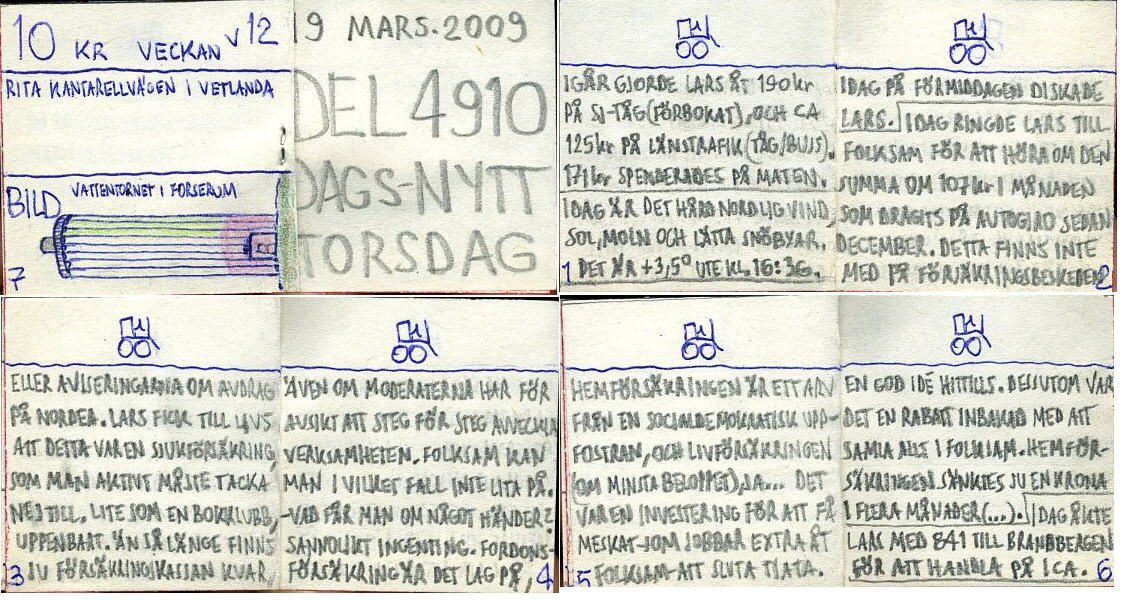 10 KR VECKAN V12
RITA KANTARELLVÄGEN I VETLANDA
VATTENTORNET I FORSERUM
BILD
7
19 MARS.2009
DEL 4910
DAGS-NYTT
TORSDAG
IGÅR GJORDE LARS ÅT 190kr
PÅ SJ-TÅG(FÖRBOKAT), OCH CA
125kr PÅ LÄNSTRAFIK (TÅG/BUSS).
171kr SPENDERADES PÅ MATEN.
IDAG ÄR DET HÅRD NORDLIG VIND,
SOL, MOLN OCH LÄTTA SNÖBYAR.
DET ÄR +3,5° UTE KL. 16:36.
1
IDAG PÅ FÖRMIDDAGEN DISKADE
LARS. IDAG RINGDE LARS TILL
FOLKSAM FÖR ATT HÖRA OM DEN
SUMMA OM 107kr I MÅNADEN
SOM DRAGITS PÅ AUTOGIRO SEDAN
DECEMBER. DETTA FINNS INTE
MED PÅ FÖRSÄKRINGSBESKEDEN
2
ELLER AVISERINGARNA OM AVDRAG
PÅ NORDEA. LARS FICK TILL LJVS
ATT DETTA VAR EN SJUKFÖRSÄKRING,
SOM MAN AKTIVT MÅSTE TACKA
NEJ TILL. LITE SOM EN BOKKLUBB,
UPPENBART. ÄN SÅ LÄNGE FINNS
JU FÖRSÄKRINGSKASSAN KVAR,
3
ÄVEN OM MODERATERNA HAR FÖR
AVSIKT ATT STEG FÖR STEG AVVECKLA
VERKSAMHETEN. FOLKSAM KAN
MAN I VILKET FALL INTE LITA PÅ.
-VAD FÅR MAN OM NÅGOT HÄNDER?
SANNOLIKT INGENTING. FORDONS-
FÖRSÄKRING ÄR DET LAG PÅ,
4
HEMFÖRSÄKRINGEN ÄR ETT ARV
FRÅN EN SOCIALDEMOKRATISK UPP-
FOSTRAN, OCH LIVFÖRSÄKRINGEN
(OM MINSTA BELOPPET), JA... DET
VAR EN INVESTERING FÖR ATT FÅ
MESKAT-SOM JOBBAR EXTRA ÅT
FOLKSAM-ATT SLUTA TJATA.
5
EN GOD IDÉ HITTILLS. DESSUTOM VAR
DET EN RABATT INBAKAD MED ATT
SAMLA ALLT I FOLKSAM. HEMFÖR-
SÄKRINGEN SÄNKTES JU EN KRONA
I FLERA MÅNADER(...). IDAG ÅKTE
LARS MED 841 TILL BRANDBERGEN
FÖR ATT HANDLA PÅ ICA.
6